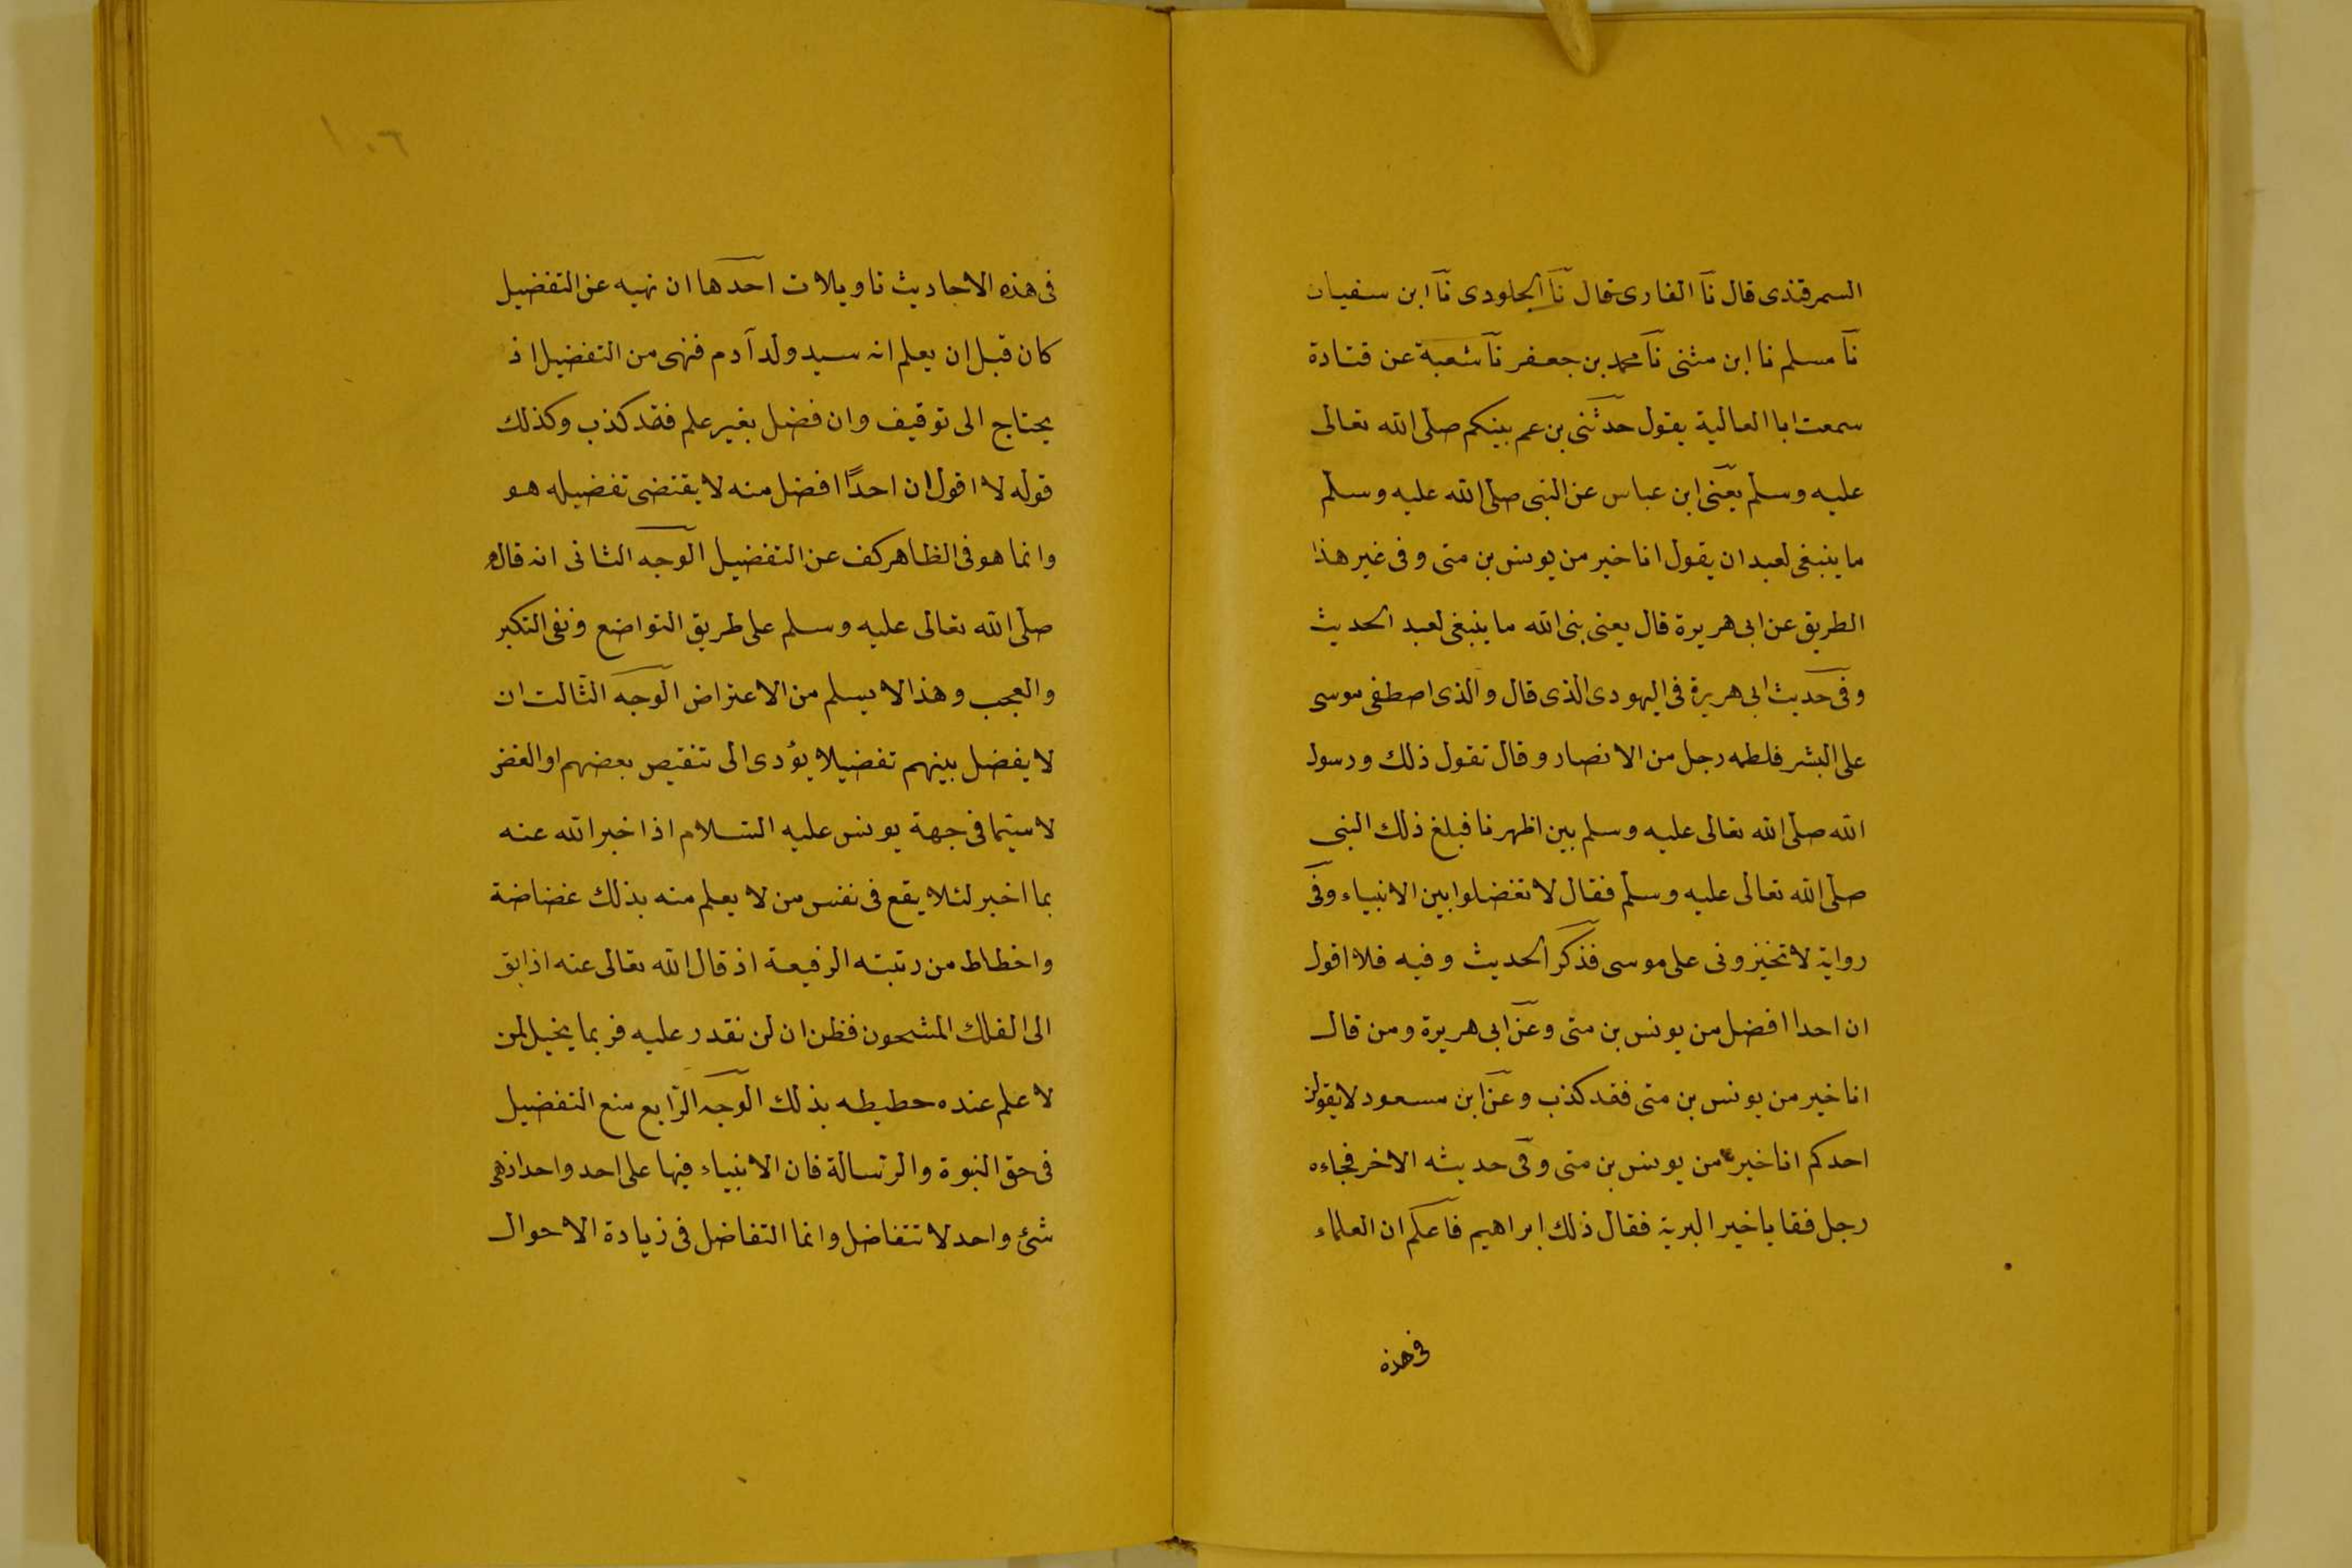 السمرقندى قال نا الفارى قال نا الجلودى نا ابن سفيان
نا مسلم نا ابن مثنى نا محمد بن جعفر نا شعبة عن قتادة
سمعت ابا العالية يقول حدثنى بن عم بينكم صلى الله تعالى
عليه وسلم يعنى ابن عباس عن النبى صلى الله عليه وسلم
ما ينبغى لعبد ان يقول انا خير من يونس بن متى وفى غير هذا
الطريق عن ابى هريرة قال يعنى بنى الله ما ينبغى لعبد الحديث
وفى حديث ابى هريرة فى اليهودى الذى قال والذى اصطفى موسى
على البشر فلطمه رجل من الانصار وقال تقول ذلك ورسول
الله صلى الله تعالى عليه وسلم بين اظهرنا فبلغ ذلك النبى
صلى الله تعالى عليه وسلم فقال لا تفضلوا بين الانبياء وفى
رواية لا تخيرونى على موسى فذكر الحديث وفيه فلا اقول
ان احدا افضل من يونس بن متى وعن ابى هريرة ومن قال
انا خير من يونس بن متى فقد كذب وعن ابن مسعود لا يقولن
احدكم انا خير من يونس بن متى وفى حديثه الاخر فجاءه
رجل فقا يا خير البرية فقال ذلك ابراهيم فاعلم ان العلماء
فى هذه
١٠٦
فى هذه الاحاديث تاويلات احدها ان نهيه عن التفضيل
كان قبل ان يعلم انه سيد ولد آدم فنهى من التفضيل اذ
يحتاج الى توقيف وان فضل بغير علم فقد كذب وكذلك
قوله لا اقول ان احدًا افضل منه لا يقتضى تفضيله هو
وانما هو فى الظاهر كف عن التفضيل الوجه الثانى انه قاله
صلى الله تعالى عليه وسلم على طريق التواضع ونفى التكبر
والعجب وهذا لا يسلم من الاعتراض الوجه الثالث ان
لا يفضل بينهم تفضيلا يؤدى الى تنقيص بعضهم او الغض
لا سيما فى جهة يونس عليه السلام اذا خبر الله عنه
بما اخبر لئلا يقع فى نفس من لا يعلم منه بذلك غضاضة
واخطاط من رتبته الرفيعة اذ قال الله تعالى عنه اذ ابق
الى الفلك المشحون فظن ان لن نقدر عليه فربما يخيل لمن
لا علم عنده حطيطه بذلك الوجه الرابع منع التفضيل
فى حق النبوة والرسالة فان الانبياء فيها على احد واحد اذ هى
شئ واحد لا تتفاضل وانما التفاضل فى زيادة الاحوال